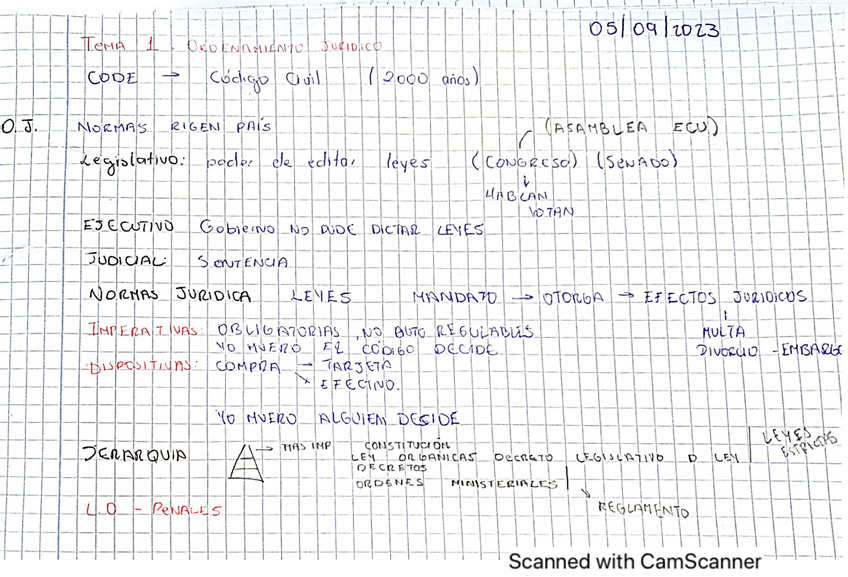 05/09/2023
TEMA 1. ORDENAMIENTO JURIDICO
CODE → Código Civil (2000 años)
(ASAMBLEA ECU)
O.J. NORMAS RIGEN PAÍS
Legislativo: poder de editar leyes (CONGRESO) (SENADO)
HABLAN
VOTAN
EJECUTIVO Gobierno NO PUDE DICTAR LEYES
JUDICIAL: SENTENCIA
NORMAS JURIDICA LEYES MANDATO → OTORGA → EFECTOS JURIDICOS
IMPERATIVAS: OBLIGATORIAS, NO AUTO REGULABLES
MULTA
YO MUERO EL CÓDIGO DECIDE
DIVORCIO - EMBARGO
DISPOSITIVAS: COMPRA → TARJETA
↘ EFECTIVO.
YO MUERO ALGUIEM DESIDE
JERARQUIA → MAS IMP CONSTITUCIÓN
LEY ORGANICAS DECRETO LEGISLATIVO D LEY
LEYES
DECRETOS
ORDENES MINISTERIALES
REGLAMENTO
L.O - PENALES
Scanned with CamScanner